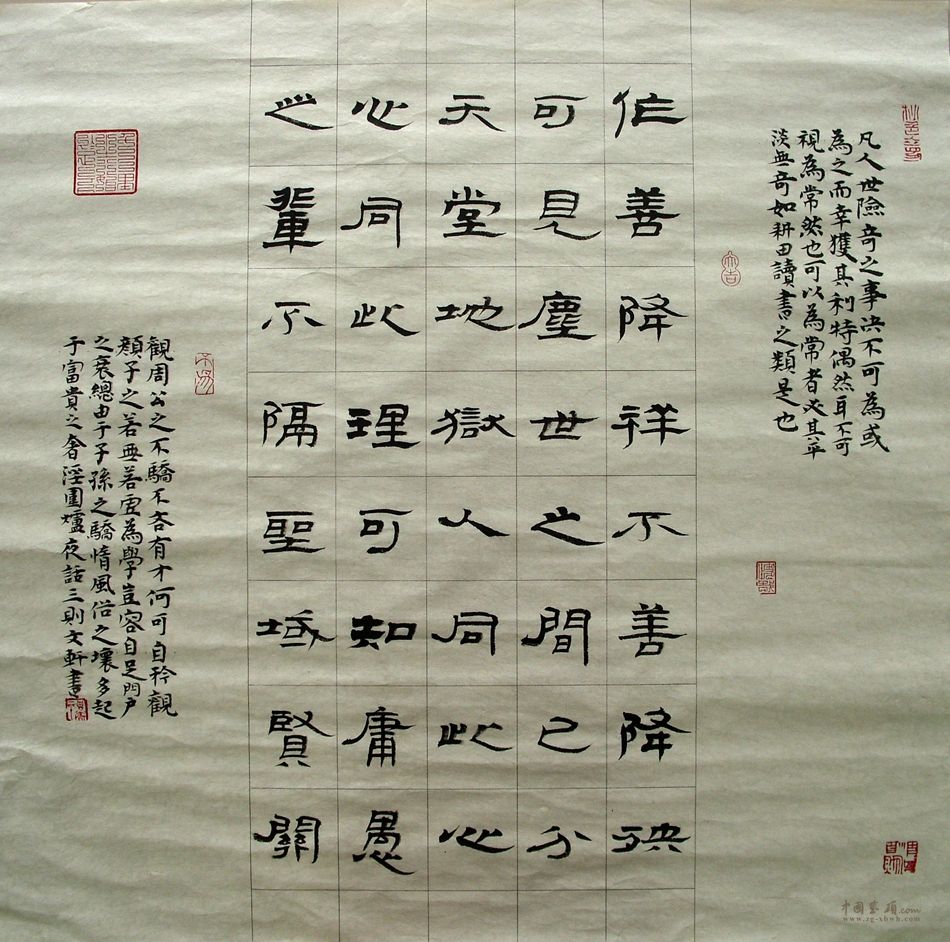 凡人世險奇之事決不可為或
為之而幸獲其利特偶然耳不可
視為常然也可以為常者必其平
淡無奇如耕田讀書之類是也
大吉
作善降祥不善降殃
可見塵世之間已分
天堂地獄人同此心
心同此理可知庸愚
之輩不隔聖域賢關
觀周公之不驕不吝有才何可自矜觀
顏子之若無若虛為學豈容自足門戶
之衰總由于子孫之驕惰風俗之壞多起
于富貴之奢淫圍爐夜話三則文軒書
www.zg-xbwh.com